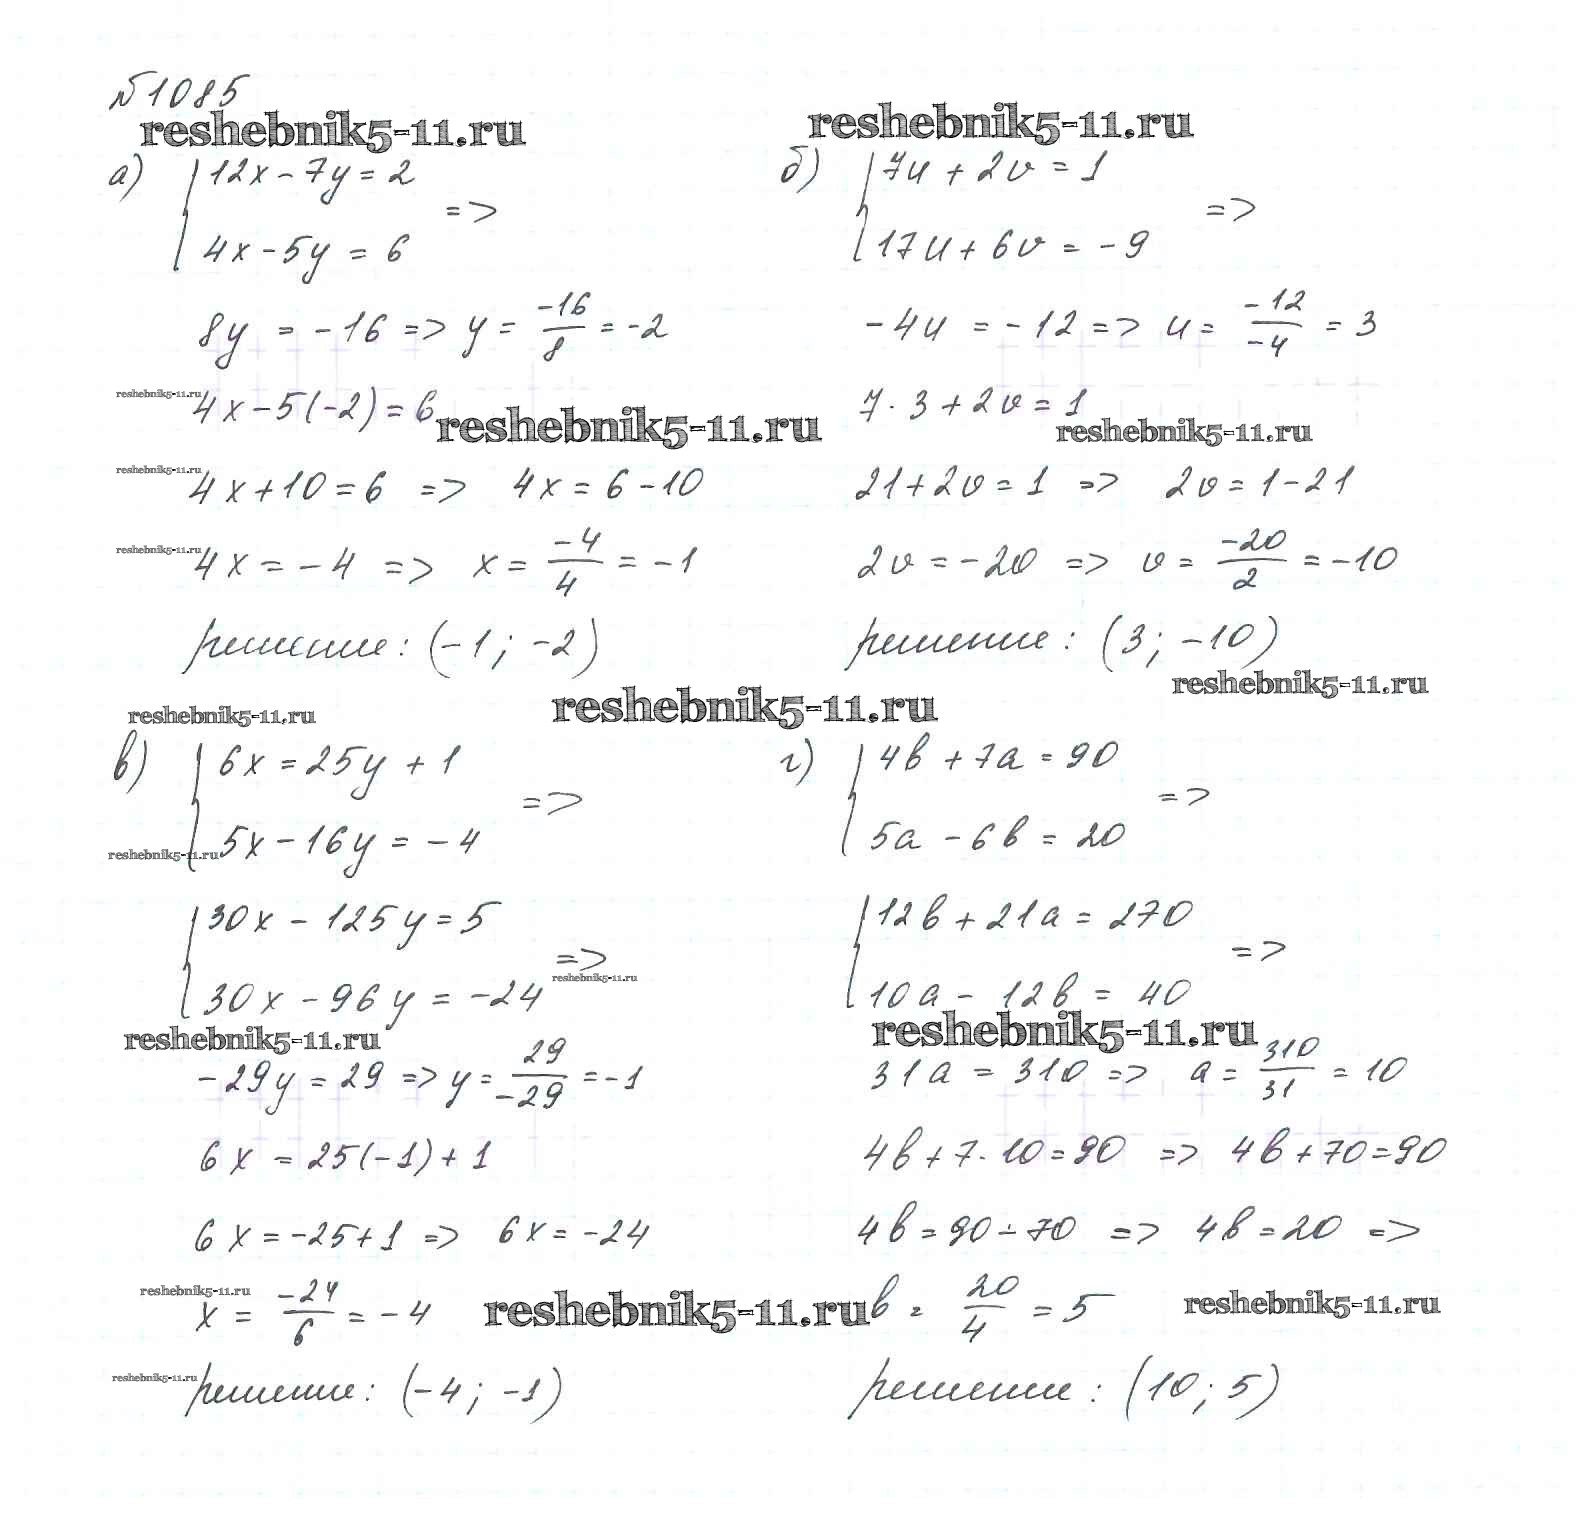 №1085
reshebnik5-11.ru
reshebnik5-11.ru
а) { 12x - 7y = 2
4x - 5y = 6 =>
8y = -16 => y = -16/8 = -2
reshebnik5-11.ru
4x - 5(-2) = 6
reshebnik5-11.ru
reshebnik5-11.ru
4x + 10 = 6 => 4x = 6 - 10
reshebnik5-11.ru
4x = -4 => x = -4/4 = -1
решение: (-1; -2)
б) { 7u + 2v = 1
17u + 6v = -9 =>
-4u = -12 => u = -12/-4 = 3
7 · 3 + 2v = 1
reshebnik5-11.ru
21 + 2v = 1 => 2v = 1 - 21
2v = -20 => v = -20/2 = -10
решение: (3; -10)
reshebnik5-11.ru
reshebnik5-11.ru
reshebnik5-11.ru
в) { 6x = 25y + 1
5x - 16y = -4 =>
reshebnik5-11.ru
{ 30x - 125y = 5
30x - 96y = -24 =>
reshebnik5-11.ru
reshebnik5-11.ru
-29y = 29 => y = 29/-29 = -1
6x = 25(-1) + 1
6x = -25 + 1 => 6x = -24
reshebnik5-11.ru
x = -24/6 = -4
reshebnik5-11.ru
reshebnik5-11.ru
решение: (-4; -1)
г) { 4b + 7a = 90
5a - 6b = 20 =>
{ 12b + 21a = 270
10a - 12b = 40 =>
reshebnik5-11.ru
31a = 310 => a = 310/31 = 10
4b + 7 · 10 = 90 => 4b + 70 = 90
4b = 90 - 70 => 4b = 20 =>
b = 20/4 = 5
reshebnik5-11.ru
решение: (10; 5)